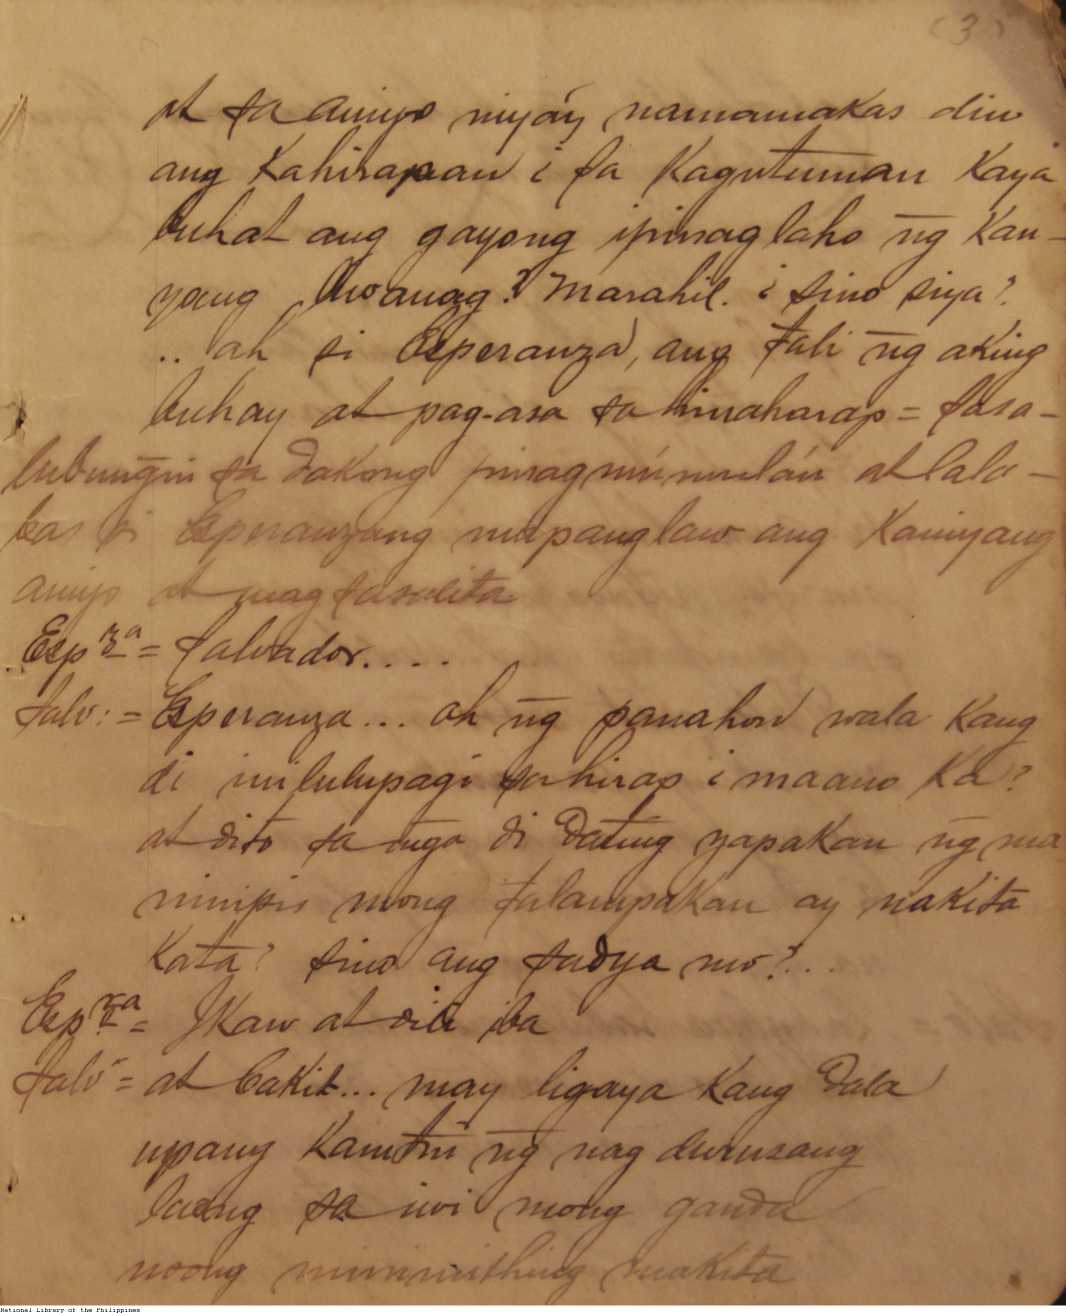 (3)
at sa anyo niyáy namamakas din
ang Kahirapan i sa Kagutuman Kaya
buhat ang gayong ipinaglaho n̄g Kan-
yang liwanag? Marahil. ¿ sino siya?
.. ah si Esperanza, ang tali n̄g aking
buhay at pag-asa sa hinaharap = sasa-
lubun̄gin sa dakong pinagmúmulán at lala-
bas si Esperanzang mapanglaw ang Kaniyang
anyo at magsasalita
Espza = Salvador....
Salv: = Esperanza... oh n̄g panahon wala Kang
di inilulupagi sa hirap ¿ maano Ka?
at dito sa di dating yapakan n̄g ma-
ninipis mong talampakan ay nakita
Kata? sino ang sadya mo?...
Espza = Ikaw at dili iba
Salv = at bakit... may ligaya Kang dala
upang Kamtin n̄g nag durusang
laang sa iwi mong ganda
noong miminithing makita
National Library of the Philippines